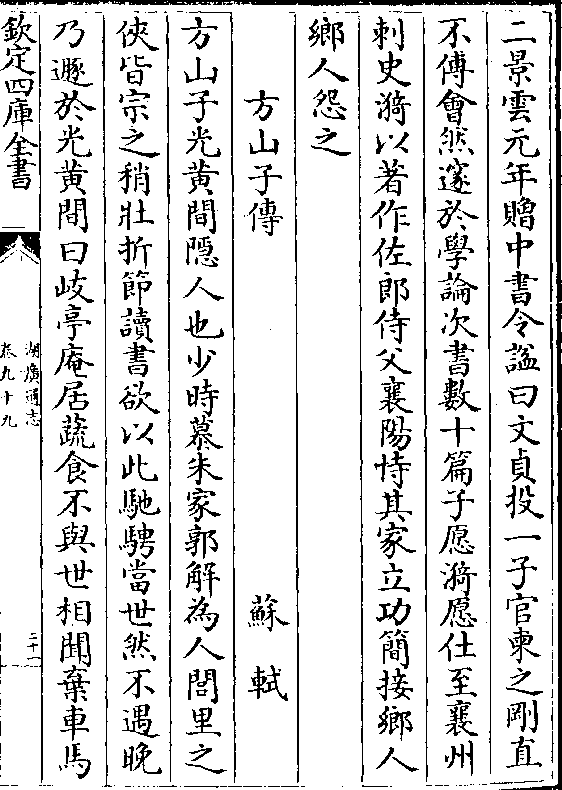 二景雲元年贈中書令諡曰文貞投一子官柬之剛直
不傅會然邃於學論次書數十篇子愿漪愿仕至襄州
刺史漪以著作佐郎侍父襄陽恃其家立功簡接鄉人
鄉人怨之
方山子傳 蘇軾
方山子光黃間隱人也少時慕朱家郭解為人閭里之
俠皆宗之稍壯折節讀書欲以此馳騁當世然不遇晚
乃遯於光黃間曰岐亭庵居蔬食不與世相聞棄車馬
欽定四庫全書
湖廣通志
卷九十九
二十一